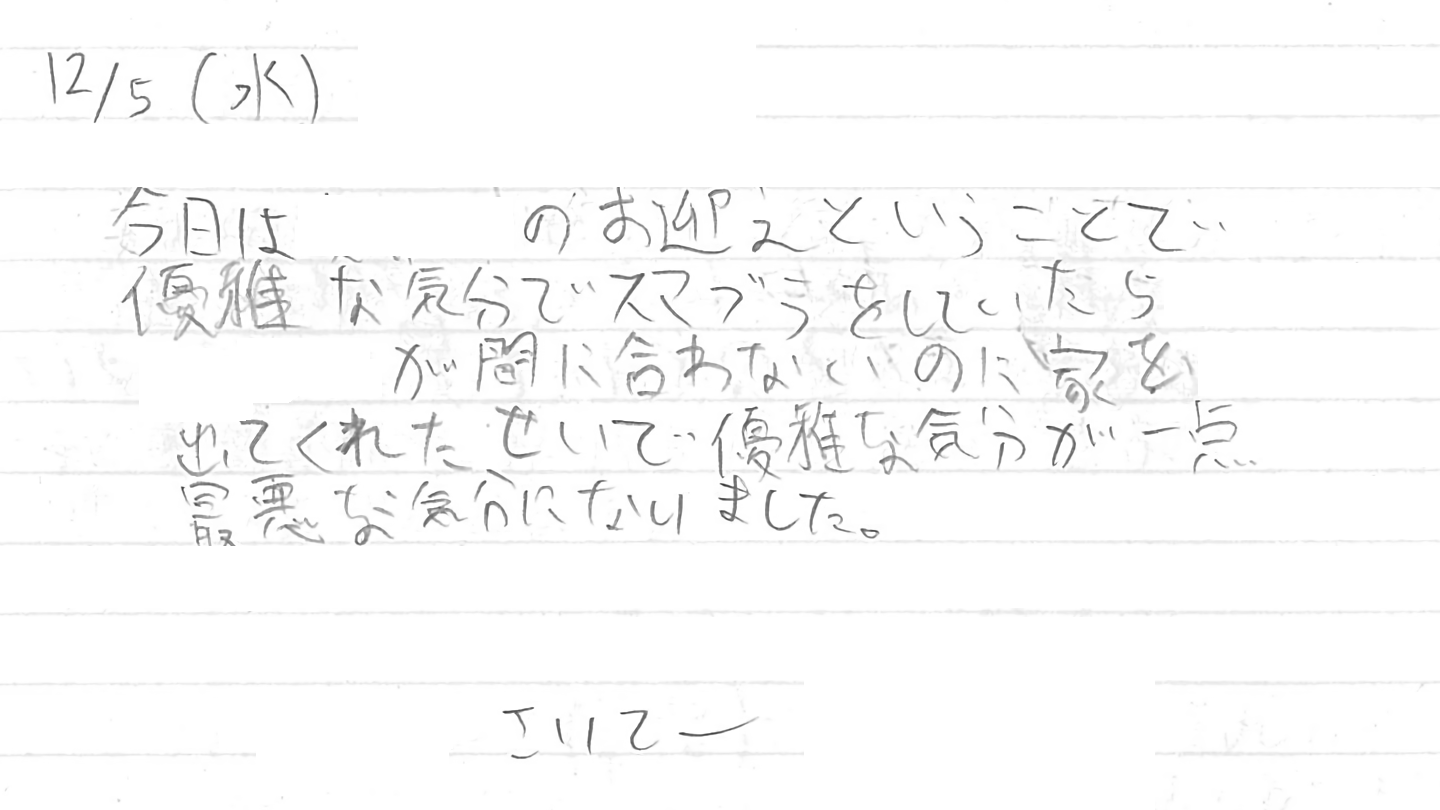 12/5 (水)
今日は のお迎えということで
優雅な気分でスマブラをしていたら
が間に合わないのに家を
出てくれたせいで優雅な気分が一点
最悪な気分になりました。
さいてー